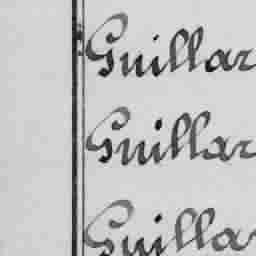 Guillar
Guillar
Guilla